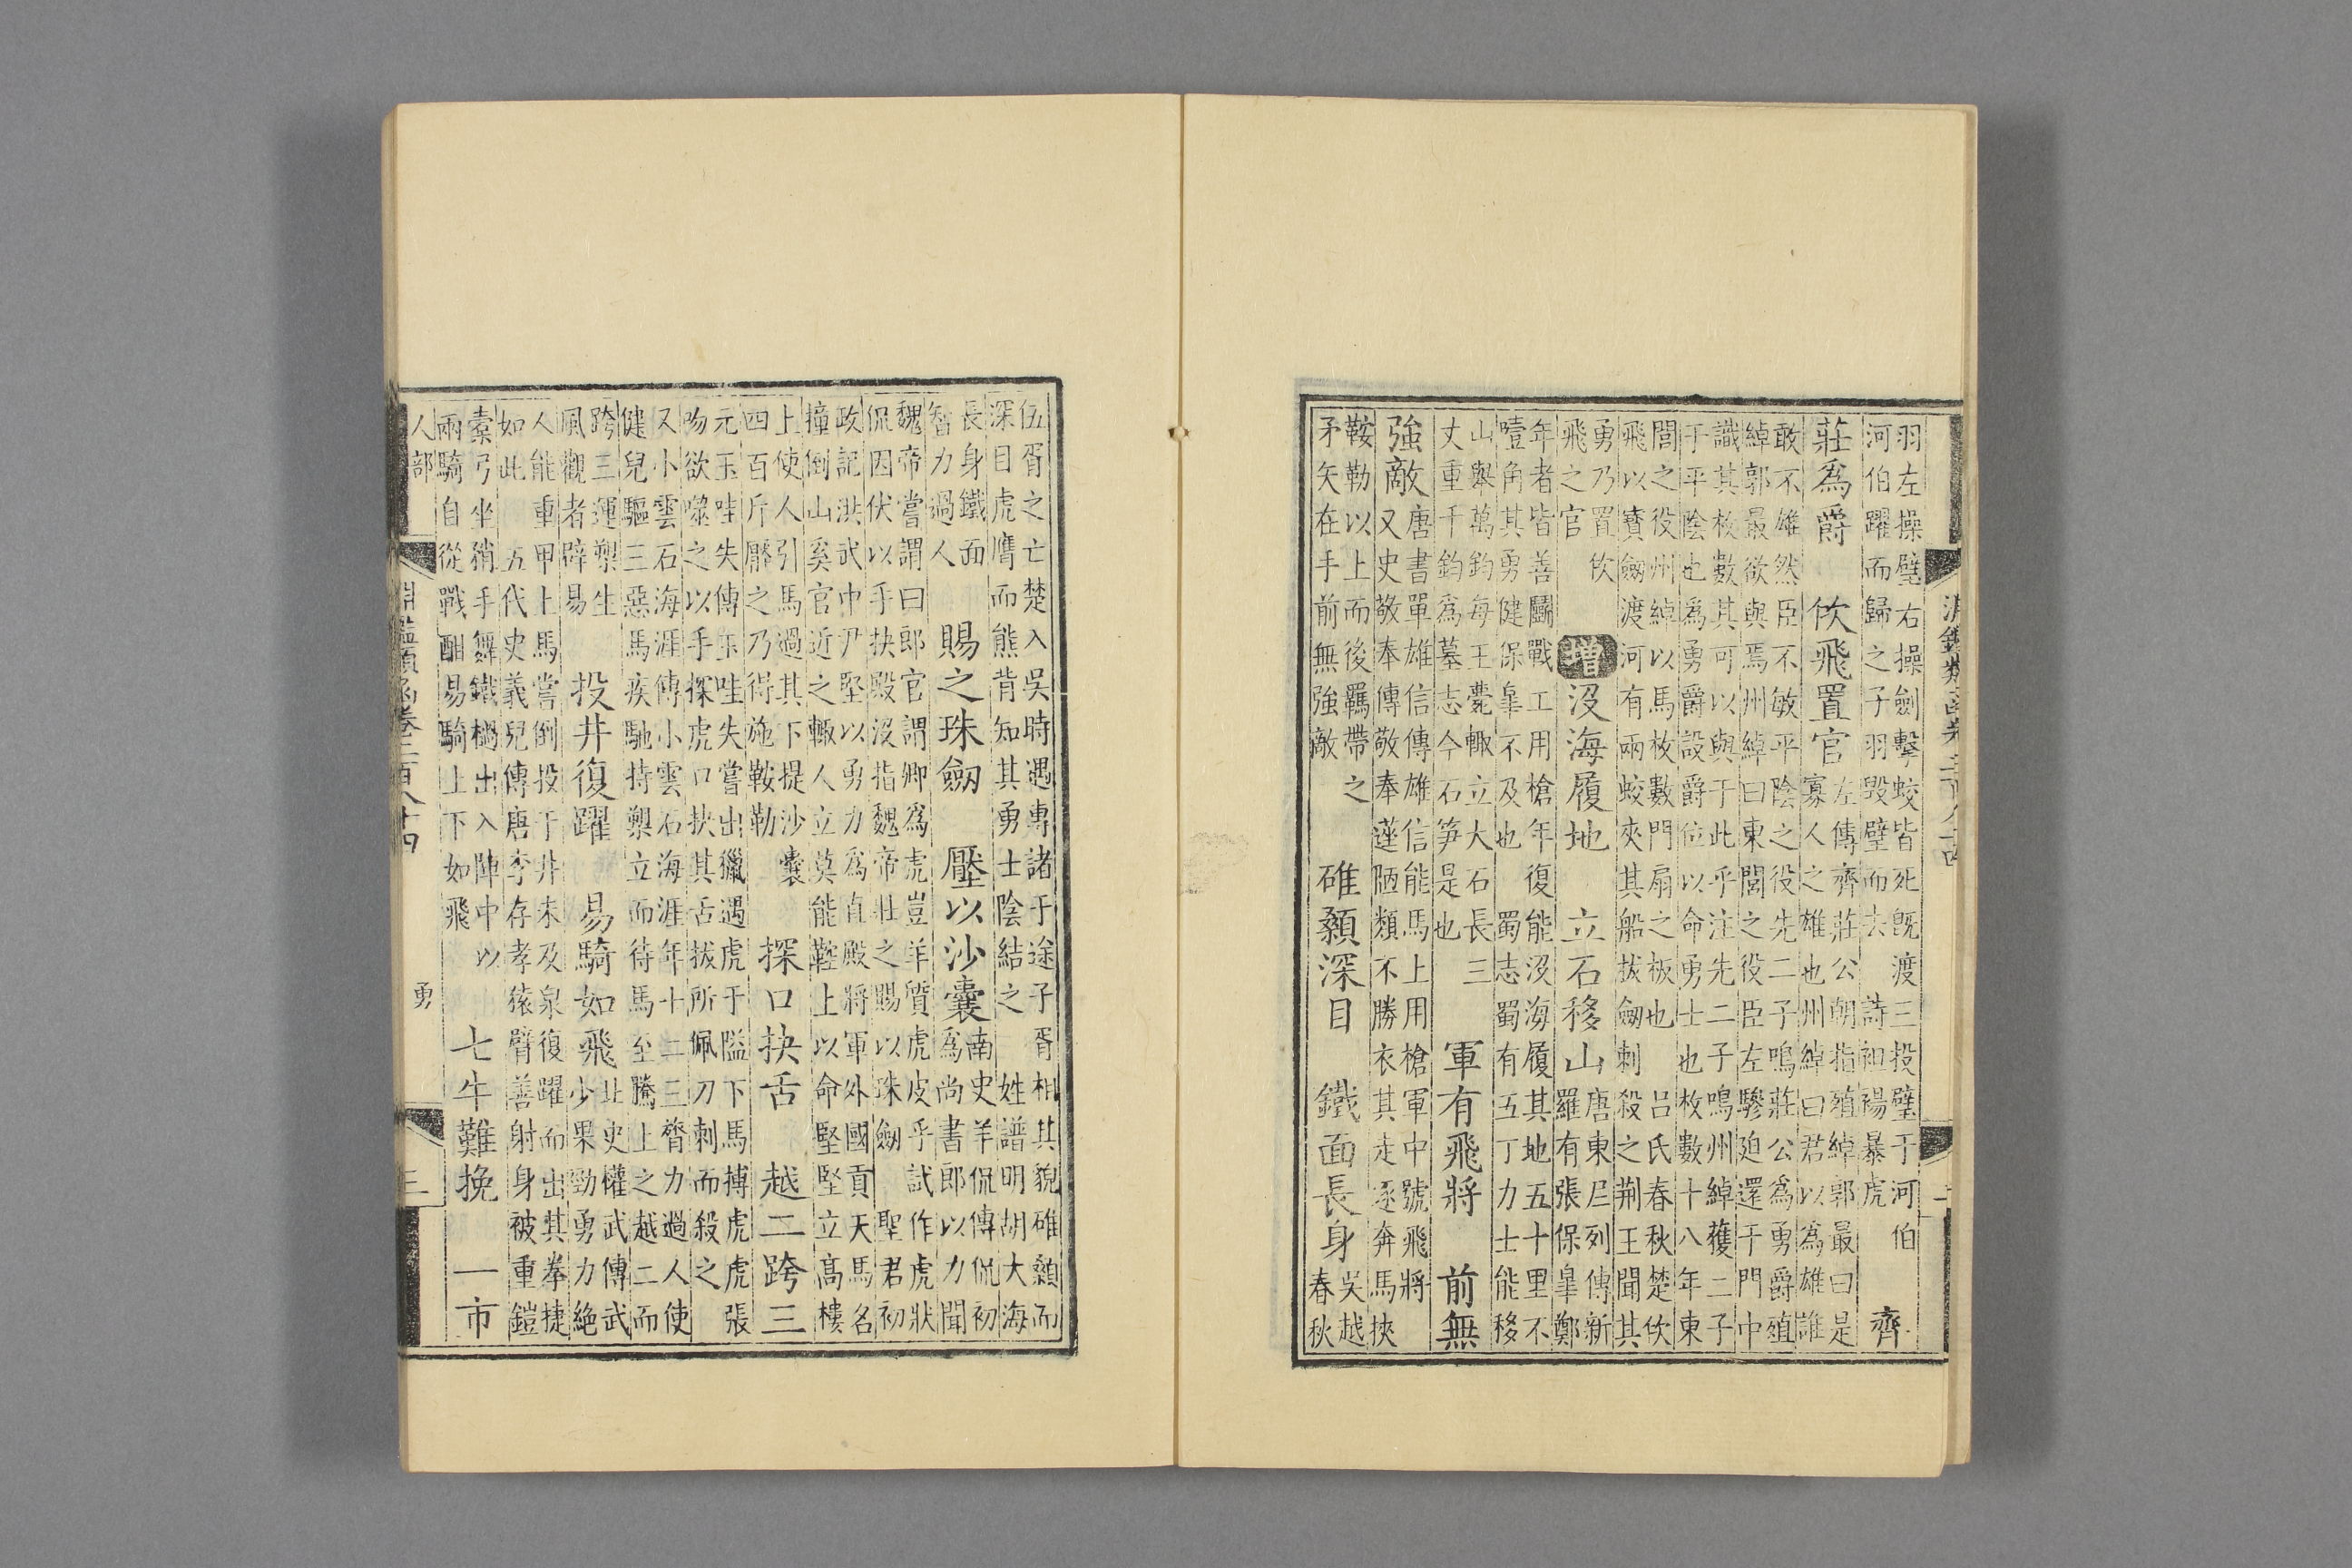 淵鑑類函卷三百八十四
羽左操璧右操劍擊蛟皆死既渡三投璧于河伯
河伯躍而歸之子羽毀璧而去 詩袒裼暴虎 齊
莊為爵 佽飛置官 左傳齊莊公朝指殖綽郭最曰是
寡人之雄也州綽曰君以為雄誰
敢不雄然臣不敏平陰之役先二子鳴莊公為勇爵殖
綽郭最欲與焉州綽曰東閭之役臣左驂迫還于門中
識其枚數其可以與于此乎注先二子鳴州綽獲二子
于平陰也為勇爵設爵位以命勇士也枚數十八年東
閭之役州綽以馬枚數門扇之板也 呂氏春秋楚佽
飛以寶劔渡河有兩蛟夾其船拔劔刺殺之荊王聞其
勇乃置佽
飛之官 增 没海履地 立石移山 唐東𡰥列傳新
羅有張保臯鄭
年者皆善鬬戰工用槍年復能没海履其地五十里不
噎角其勇健保臯不及也 蜀志蜀有五丁力士能移
山舉萬鈞每王薨輙立大石長三
丈重千鈞為墓志今石笋是也 軍有飛將 前無
強敵 唐書單雄信傳雄信能馬上用槍軍中號飛將
又史敬奉傳敬奉陋類不勝衣其走逐奔馬挾
鞍勒以上而後羈帶之
矛矢在手前無強敵 碓顙深目 鐵面長身 吳越
春秋
伍胥之亡楚入吳時遇專諸于途子胥相其貌碓顙而
深目虎膺而熊背知其勇士陰結之 姓譜明胡大海
長身鐵面
智力過人 賜之珠劔 壓以沙囊 南史羊侃傳侃初
為尚書郎以力聞
魏帝嘗謂曰郎官謂卿為虎豈羊質虎皮乎試作虎狀
侃因伏以手抉殿没指魏帝壯之賜以珠劔 聖君初
政記洪武中尹堅以勇力為直殿將軍外國貢天馬名
撞倒山奚官近之輙人立莫能鞚上以命堅堅立高樓
上使人引馬過其下提沙囊
四百斤壓之乃得施鞍勒 探口抉舌 越二跨三
元玉哇失傳玉哇失嘗出獵遇虎于隘下馬搏虎虎張
吻欲噬之以手探虎口抉其舌拔所佩刀刺而殺之
又小雲石海涯傳小雲石海涯年十二三膂力過人使
健兒驅三惡馬疾馳持槊立而待馬至騰上之越二而
跨三運槊生
風觀者辟易 投井復躍 易騎如飛 北史權武傳武
少果勁勇力絶
人能重甲上馬嘗倒投于井未及泉復躍而出其拳捷
如此 五代史義兒傳唐李存孝猿臂善射身被重鎧
櫜弓坐矟手舞鐵檛出入陣中以
兩騎自從戰酣易騎上下如飛 七牛難挽 一市
人部 淵鑑類函卷三百八十四 勇 三